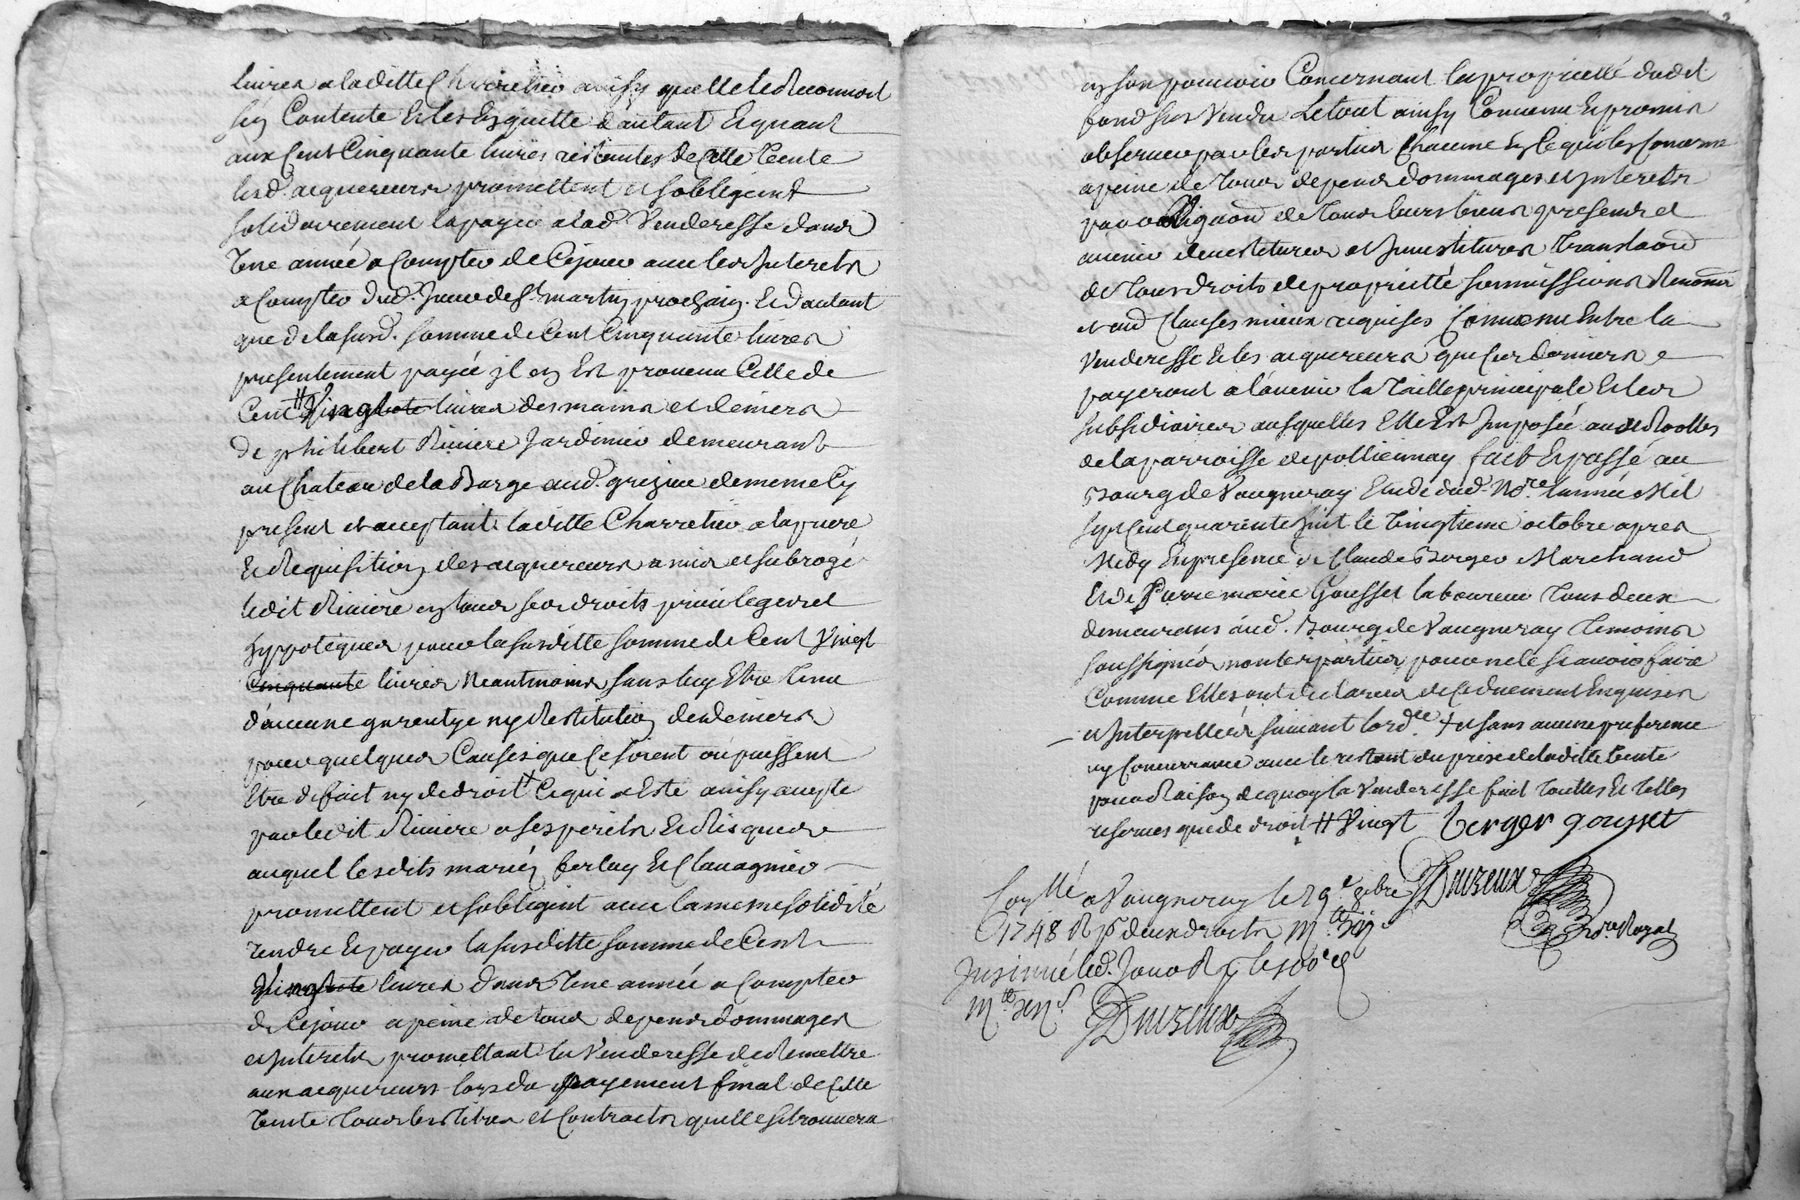 livres a laditte Charretier ainsy quelle le Reconnoit
sen Contente Et les En quitte d'autant Et quant
aux Cent Cinquante livres restantes de Cette Vente
lesd. acquereurs promettent et sobligent
solidairement la payer a lad. Venderesse dans
Une année a Compter de Cejour avec les Interets
a Compter dud. Jour de St. martin prochain. Et dautant
que de la susd. somme de Cent Cinquante livres
presentement payée il en Est provenu Celle de
Cent # Vingt livres des mains et deniers
de philibert Riviere Jardinier demeurant
au Chateau de la Barge aud. grezieu de meme Cy
present et acceptant laditte Charretier a la priere
Et Requisition des acquereurs a mis et subrogé
ledit Riviere en tous ses droits privileges et
hypoteques pour la susditte somme de Cent Vingt
Cinquante livres Neantmoins sans luy Etre tenue
d'aucune garentye ny Restitution de deniers
pour quelques Causes que Ce soient ou puissent
Etre de fait ny de droit + Ce qui a Esté ainsy accepté
par ledit Riviere a ses perils Et Risques
auquel lesdits mariés ferlay Et Clavagnier
promettent et sobligent avec la meme solidité
rendre Et payer la susditte somme de Cent
Vingt livres dans Une année a Compter
de Cejour a peine de tous depens dommages
et Interets promettant la Venderesse de Remettre
aux acquereurs lors du payement final de Cette
Vente tous les titres et Contracts quelle se trouvera
en son pouvoir Concernant la proprietté dudit
fond sus Vendu Le tout ainsy Convenu Et promis
observer par les parties Chacune En Ce qui les Concerne
a peine de tous depens dommages et Interets
par obligaon de tous leurs biens presents et
avenir devestitures et Investitures translaon
de tous droits de proprietté soumissions Renonons
et aud Clauses mieux requises Convenu Entre la
Venderesse Et les acquereurs que Ces derniers
payeront a l'avenir la Taille principale Et les
subsidiaires ausquelles Elle Est Imposée aux Roolles
de la parroisse de pollionnay fait Et passé au
Bourg de Vaugneray Etude dud. Nore. lannée Mil
sept Cent quarente huit le Vingtieme octobre apres
Midy En presence de Claude Berger Marchand
Et de Pierre marie Gousset laboureur tous deux
demeurans aud. Bourg de Vaugneray temoins
soussignés non les parties pour ne le scavoir faire
Comme Elles ont declarées de Ce duement Enquises
et Interpellées suivant lordce. + et sans aucune preference
ny Concurrance avec le restant du prix de laditte Vente
pour Raison de quoy la Venderesse fait touttes Et telles
reserves que de droit # Vingt berger gousset
Conllé a Vaugneray le 29e 8bre Duzeux
1748 R p deux droits
Nore Royal
Insinué led. Jour R
Duzeux